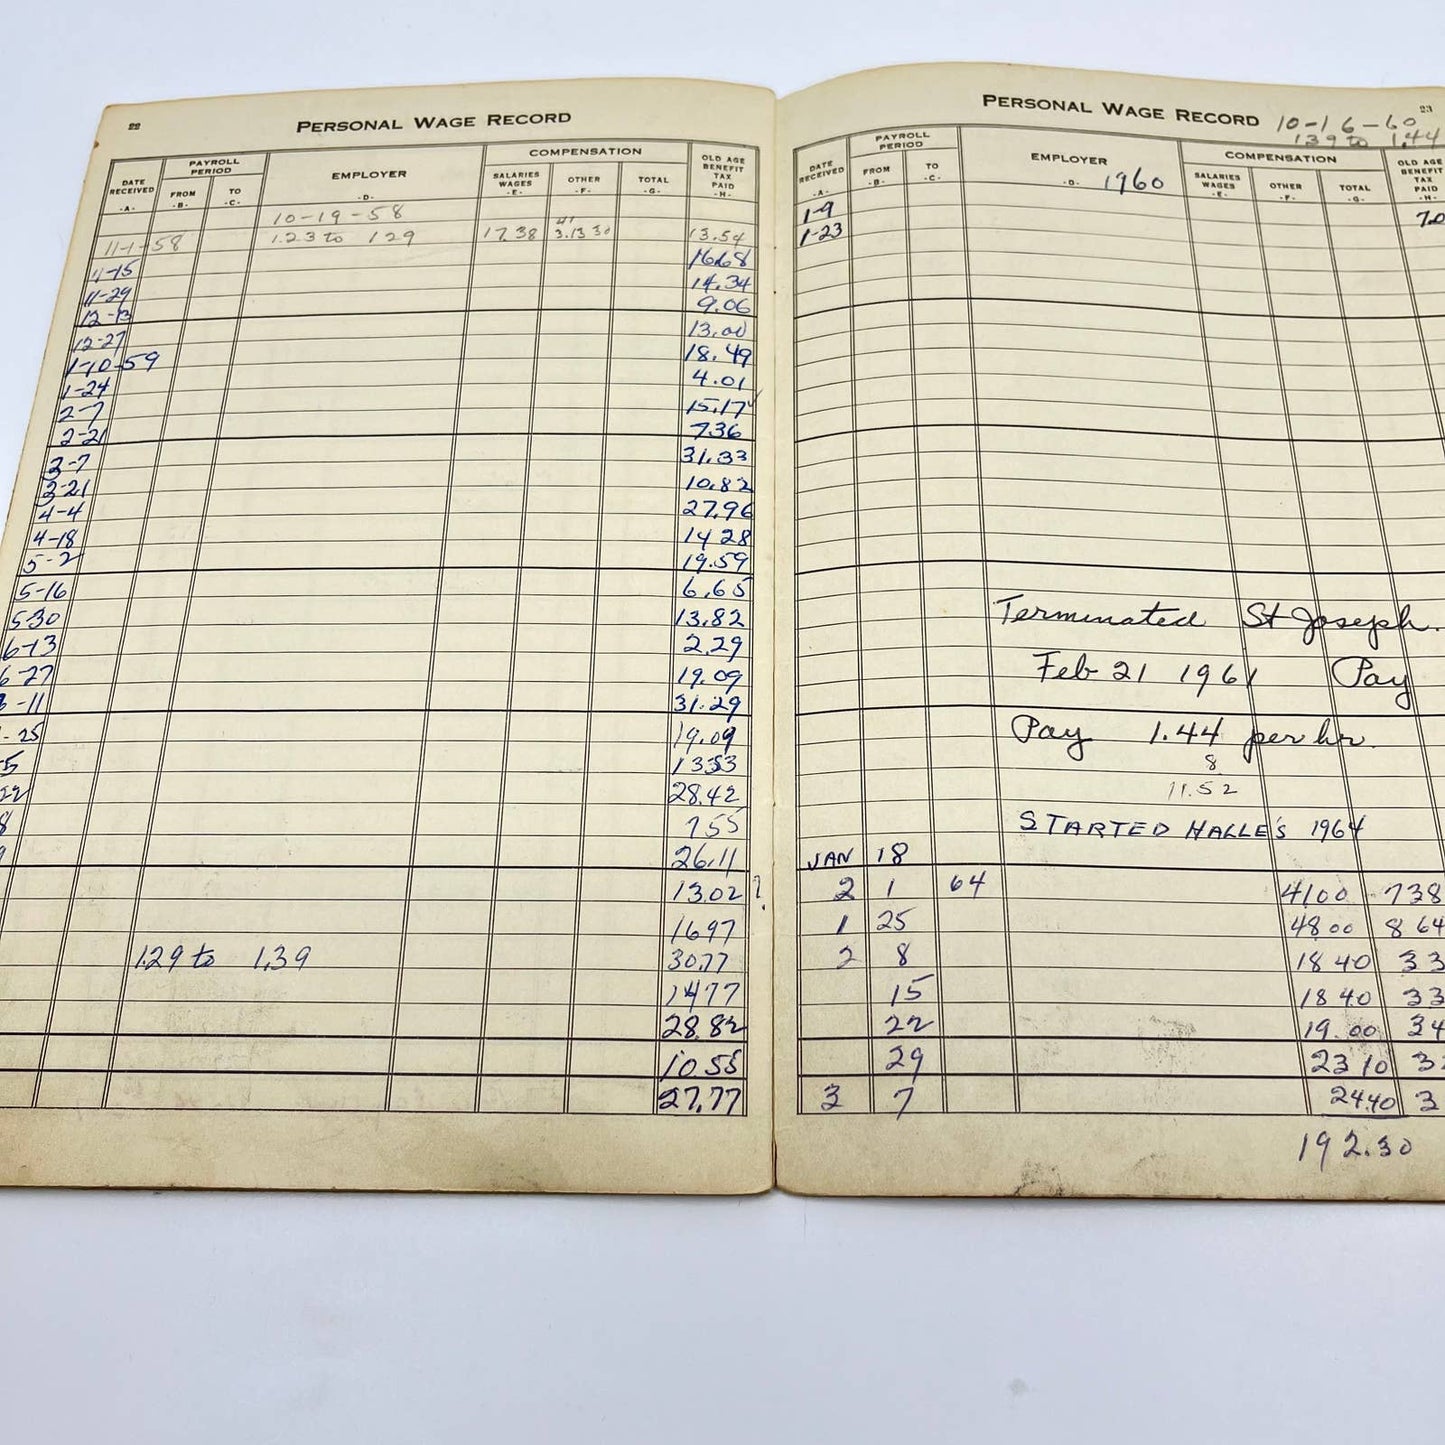 22
PERSONAL WAGE RECORD
DATE RECEIVED -A- PAYROLL PERIOD FROM -B- TO -C- EMPLOYER -D- COMPENSATION SALARIES WAGES -E- OTHER -F- TOTAL -G- OLD AGE BENEFIT TAX PAID -H-
10-19-58
11-1-58 1.23 to 129 17.38 13.54
11-15 16.68
11-29 14.34
12-13 9.06
12-27 13.00
1-10-59 18.49
1-24 4.01
2-7 15.17
2-21 736
3-7 31.33
3-21 10.82
4-4 27.96
4-18 14 28
5-2 19.59
5-16 6.65
5-30 13.82
6-13 2.29
6-27 19.09
-11 31.29
-25 19.09
-5 1333
22 28.42
8 755
26.11
13.02 ?
1697
129 to 1.39 30.77
1477
28.82
10.55
27.77
23
PERSONAL WAGE RECORD 10-16-60
139 to 1.44
DATE RECEIVED -A- PAYROLL PERIOD FROM -B- TO -C- EMPLOYER -D- 1960 COMPENSATION SALARIES WAGES -E- OTHER -F- TOTAL -G- OLD AGE BENEFIT TAX PAID -H-
1-9 70
1-23
Terminated St Joseph.
Feb 21 1961 Pay
Pay 1.44 per hr.
8
11.52
STARTED HALLE'S 1964
JAN 18
2 1 64 41 00 738
1 25 48 00 8 64
2 8 18 40 33
15 18 40 33
22 19.00 34
29 23 10 3
3 7 24.40 3
192.30